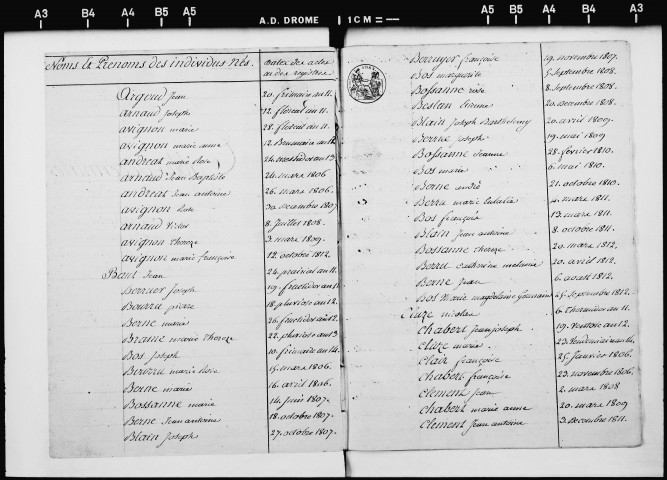 A3 B4 A4 B5 A5 A.D. DROME 1 CM = A5 B5 A4 B4 A3
Noms & Prenoms des individus Nés. Dates des actes ou des registres
Argoud Jean 20. frimaire an 11.
arnaud Joseph 12. floreal an 11.
avignon marie 28. floreal an 11.
avignon marie anne 12. Brumaire an 12
andreat marie Rose 24. messidor an 13
arnaud Jean Baptiste 24. mars 1806
andreat Jean antoine 26. mars 1806.
avignon 30 decembre 1807
arnaud Victor 8. Juillet 1808.
avignon Thereze 3. mars 1809.
avignon marie françoise 12. octobre 1812.
Jean 24. prairial an 11.
Berruier Joseph 19. fructidor an 11.
Bourru pierre 18. pluviose an 12.
Berne marie 26. fructidor an 12.
marie Thereze 22. pluviose an 13
Bos Joseph 10. frimaire an 14.
Bourru marie Rose 15. mars 1806.
Berne marie 16. avril 1806.
Bossanne marie 14. Juin 1807.
Berne Jean antoine 18. octobre 1807.
Blain Joseph 27. octobre 1807.
Berruyer françoise 19. novembre 1807.
Bos marguerite 5. septembre 1808.
Bossanne rose 8. septembre 1808.
Beslan Etienne 20. decembre 1808.
Blain Joseph Barthelemy 20. avril 1809.
Berrue Joseph 19. mai 1809
Bossanne Jeanne 28. fevrier 1810.
Bos marie 6. mai 1810.
Borne andré 21. octobre 1810.
Berru marie Eulalie 4. mars 1811.
Bos françois 13. mars 1811.
Blain Jean antoine 8. octobre 1811.
Bossanne Thereze 20. mars 1812.
Berru Catherine melanie 20. avril 1812.
Berne Jean 6. aout 1812.
Bos Marie magdelaine 25. septembre 1812.
Cluze nicolas 6. Thermidor an 11.
Chabert Jean Joseph 19. Ventose an 12.
Cluze marie 23. Vendemiaire an 14.
Clair françoise 25. Janvier 1806.
Chabert françoise 23. novembre 1806.
Clement Jean 2. mars 1808
Chabert marie anne 20. mars 1809
Clement Jean antoine 3. decembre 1811.